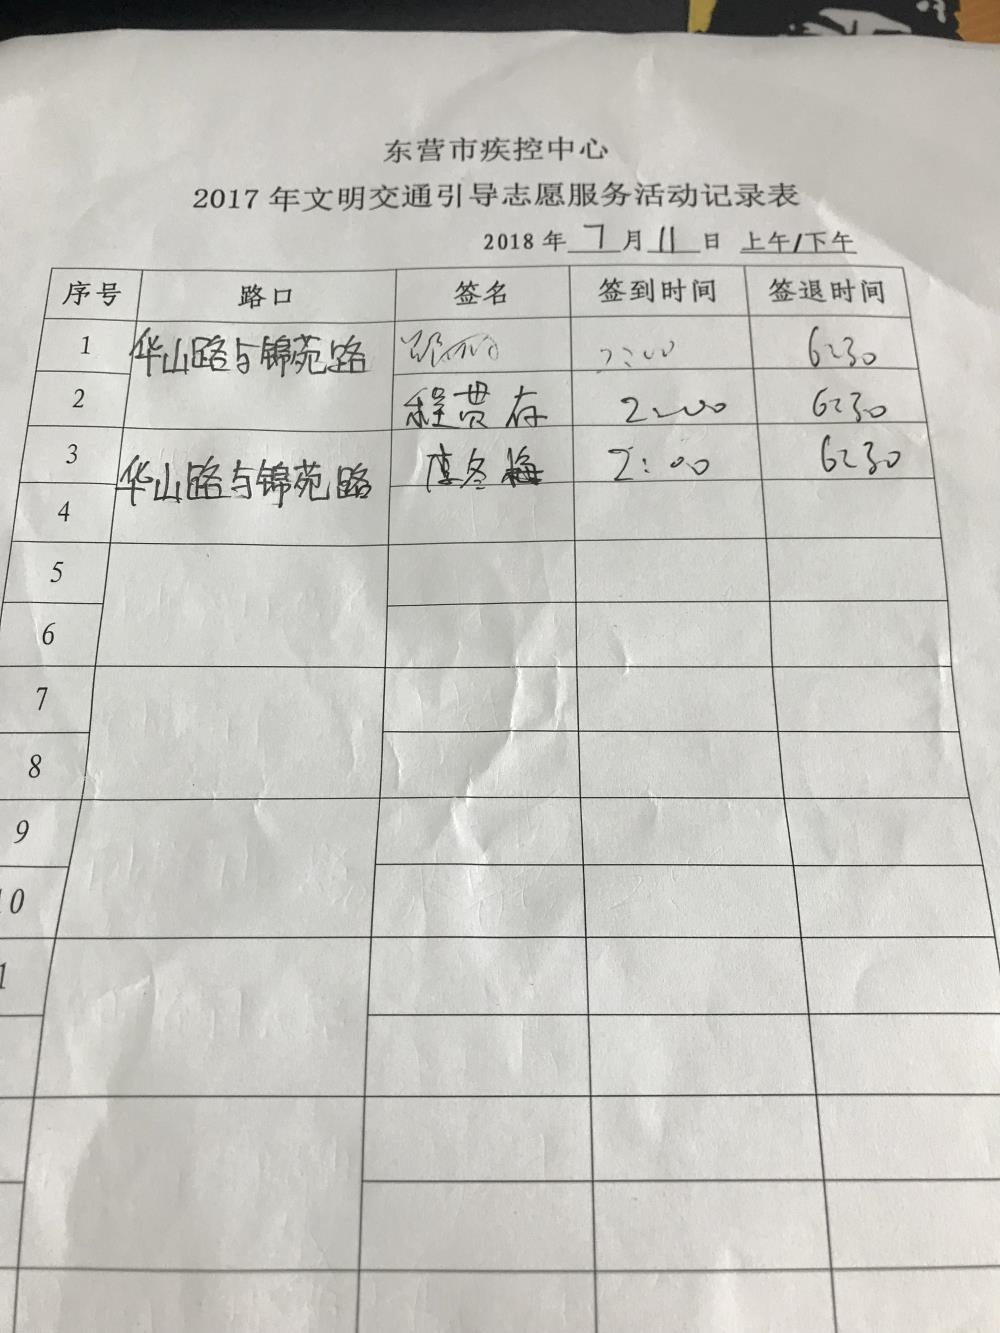 东营市疾控中心
2017年文明交通引导志愿服务活动记录表
2018年 7 月 11 日 上午/下午
序号 路口 签名 签到时间 签退时间
1 华山路与锦苑路 2:00 6:30
2 程贵存 2:00 6:30
3 华山路与锦苑路 李冬梅 2:00 6:30
4
5
6
7
8
9
10
1